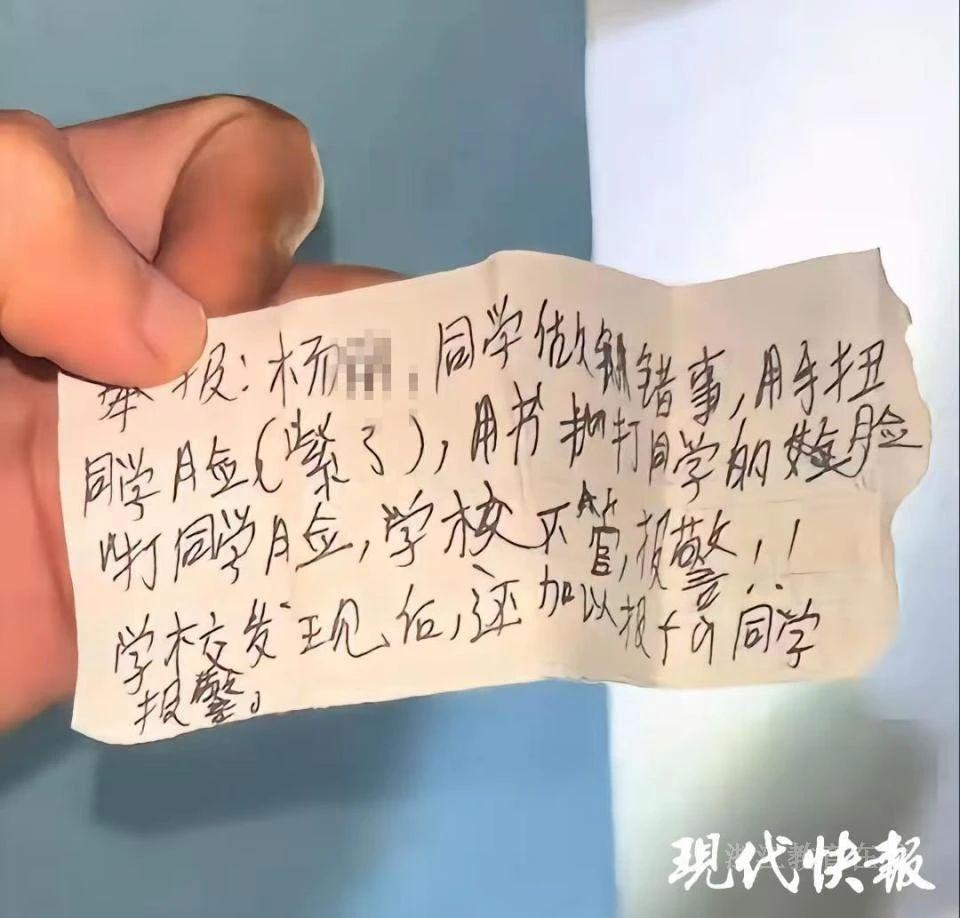 举报:杨 同学做错事,用手扭
同学脸(紫了),用书打同学的脸
打同学脸,学校不管,报警!!
学校发现后,还加以报 同学
报警。
現代快報